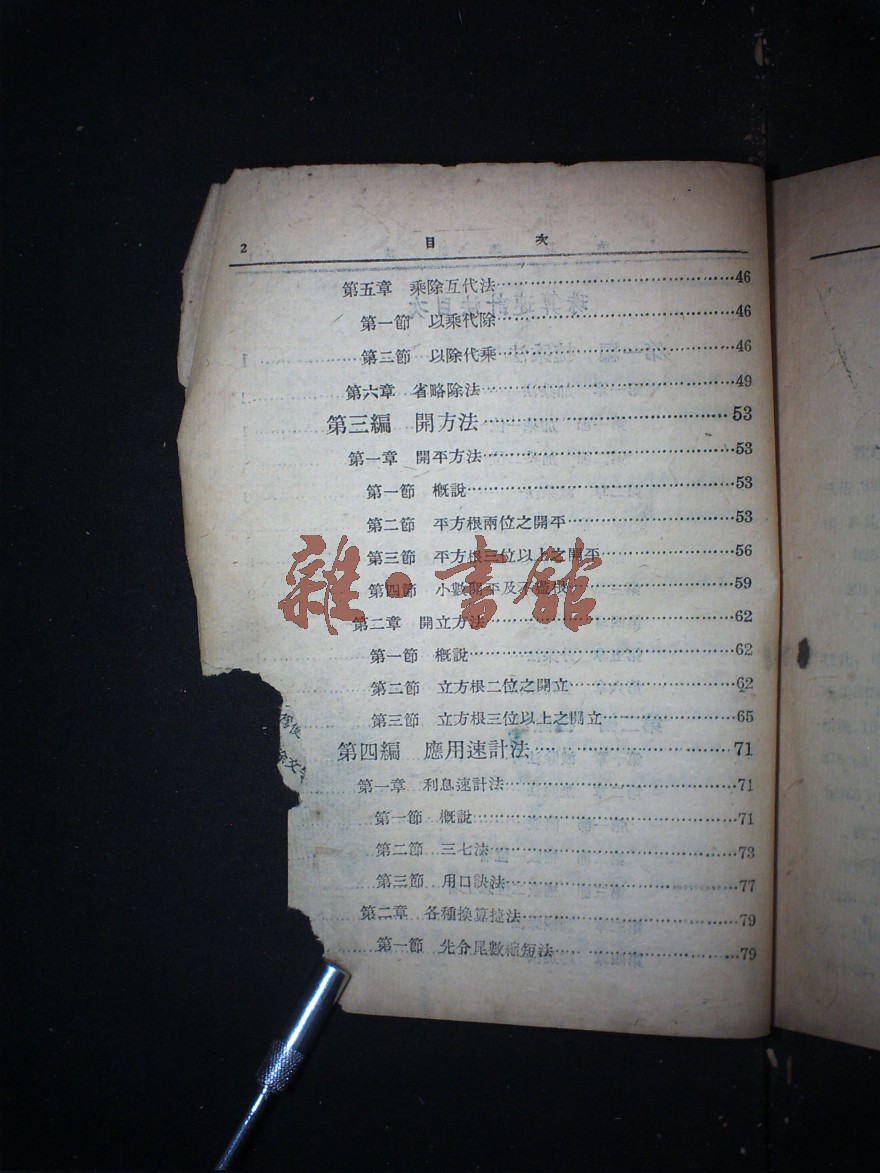 2 目 次
第五章 乘除互代法 46
第一節 以乘代除 46
第三節 以除代乘 46
第六章 省略除法 49
第三編 開方法 53
第一章 開平方法 53
第一節 概說 53
第二節 平方根兩位之開平 53
第三節 平方根三位以上之開平 56
第四節 小數開平及不盡根 59
第二章 開立方法 62
第一節 概說 62
第二節 立方根二位之開立 62
第三節 立方根三位以上之開立 65
第四編 應用速計法 71
第一章 利息速計法 71
第一節 概說 71
第二節 三七法 73
第三節 用口訣法 77
第二章 各種換算捷法 79
第一節 先令尾數縮短法 79
雜·書館